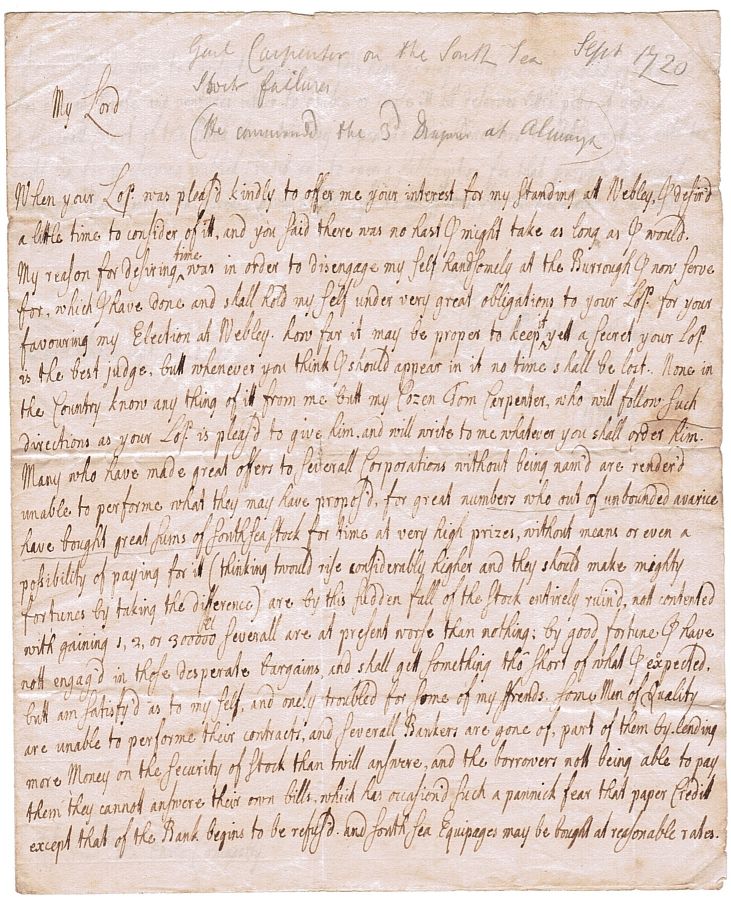 Genl Carpenter on the South Sea Sept 1720
Stock failures
My Lord
(He commanded the 3d Dragoons at Almanza)
When your Lops. was pleas'd kindly to offer me your interest for my standing att Webley, I desir'd
a little time to consider of itt, and you said there was no hast I might take as long as I would.
My reason for desiring time was in order to disengage my self handsomely at the Burrough I now serve
for, which I have done and shall hold my self under very great obligations to your Lops. for your
favouring my Election at Webley. how far it may be proper to keep it yett a secret your Lops.
is the best judge, butt whenever you think I should appear in it no time shall be lost. None in
the Country know any thing of itt from me butt my Cozen Tom Carpenter, who will follow such
directions as your Lops. is pleas'd to give him, and will write to me whatever you shall order him.
Many who have made great offers to severall Corporations without being nam'd are render'd
unable to performe what they may have propos'd, for great numbers who out of unbounded avarice
have bought great sums of South sea stock for time at very high prizes, without means or even a
possibility of paying for it (thinking twould rise considerably higher and they should make mighty
fortunes by taking the difference) are by this sudden fall of the stock entirely ruin'd, not contented
with gaining 1, 2, or 300000 severall are at present worse than nothing; by good fortune I have
nott engag'd in those desperate bargains, and shall gett something tho short of what I expected,
butt am satisfy'd as to my self, and onely troubled for some of my ffrends. some Men of Quality
are unable to performe their contracts, and severall Bankers are gone of, part of them by lending
more Money on the security of stock than twill answere, and the borrovers nott being able to pay
them they cannott answere their own bills, which has occasion'd such a pannick fear that paper Creditt
except that of the Bank begins to be refus'd. and South sea Equipages may be bought at reasonable rates.